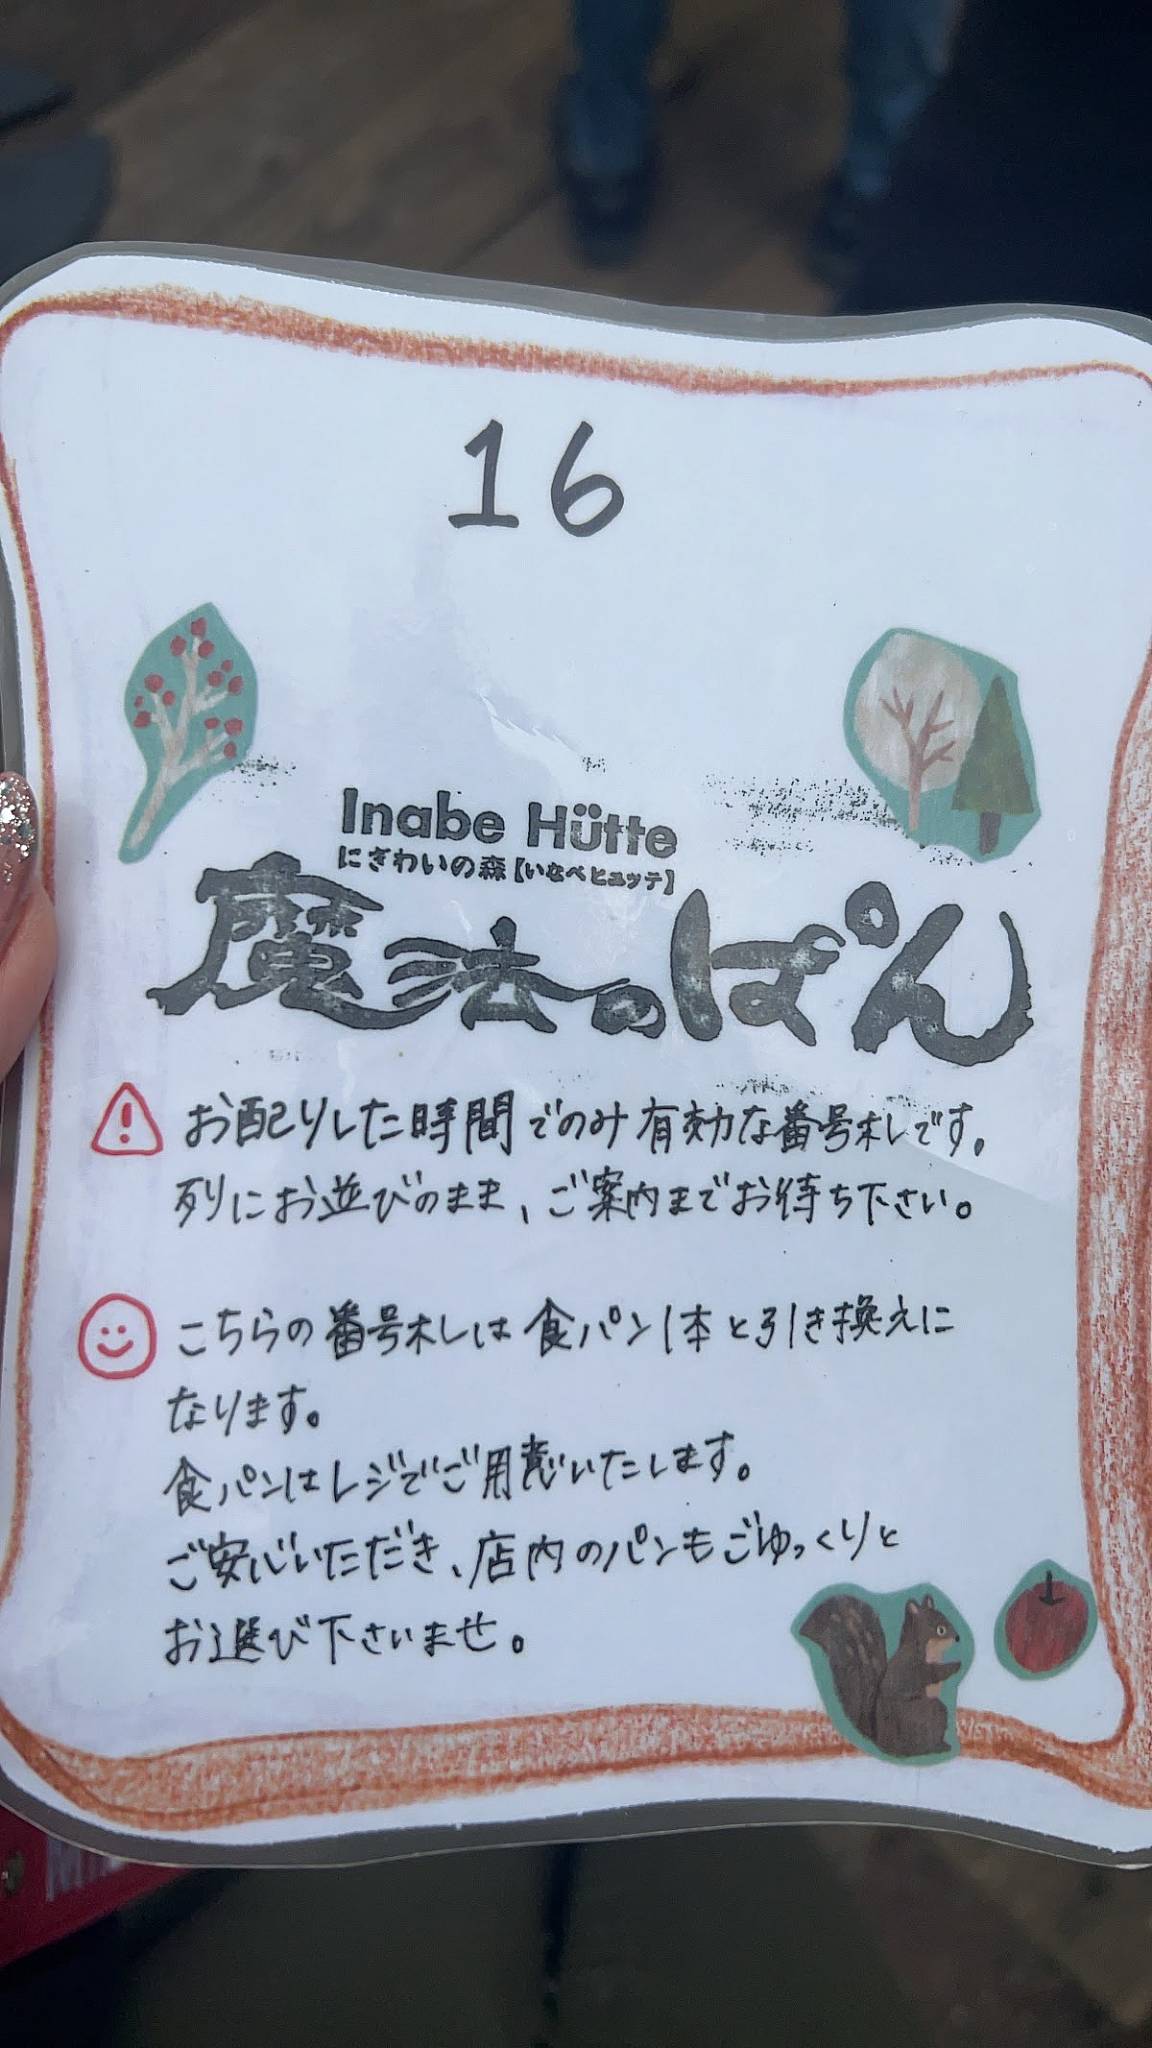 16
Inabe Hütte
にぎわいの森【いなべヒュッテ】
魔法のぱん
お配りした時間でのみ有効な番号札です。
列にお並びのまま、ご案内までお待ち下さい。
こちらの番号札は食パン1本と引き換えに
なります。
食パンはレジでご用意いたします。
ご安心いただき、店内のパンもごゆっくりと
お選び下さいませ。